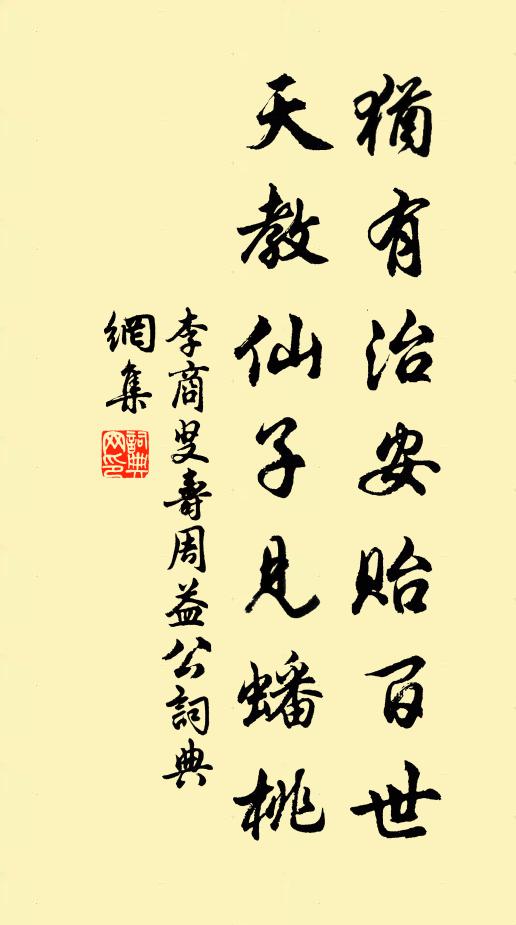 猶有治安貽百世
天教仙子見蟠桃
李商叟壽周益公詞典
網集
詞典網印